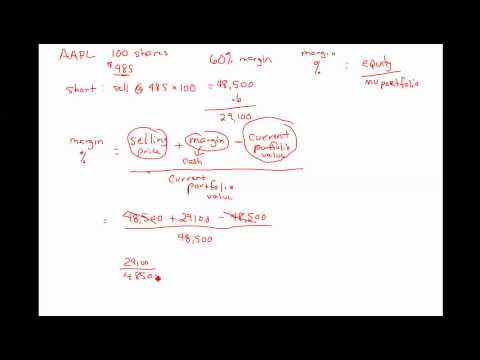 AAPL 100 shares 60% margin margin % = equity / mv portfolio
$485
short: sell @ 485 x 100 = 48,500
.6
29,100
margin % = selling price + margin - current portfolio value
cash
current portfolio value
= 48,500 + 29,100 - 48,500
48,500
29,100
48500